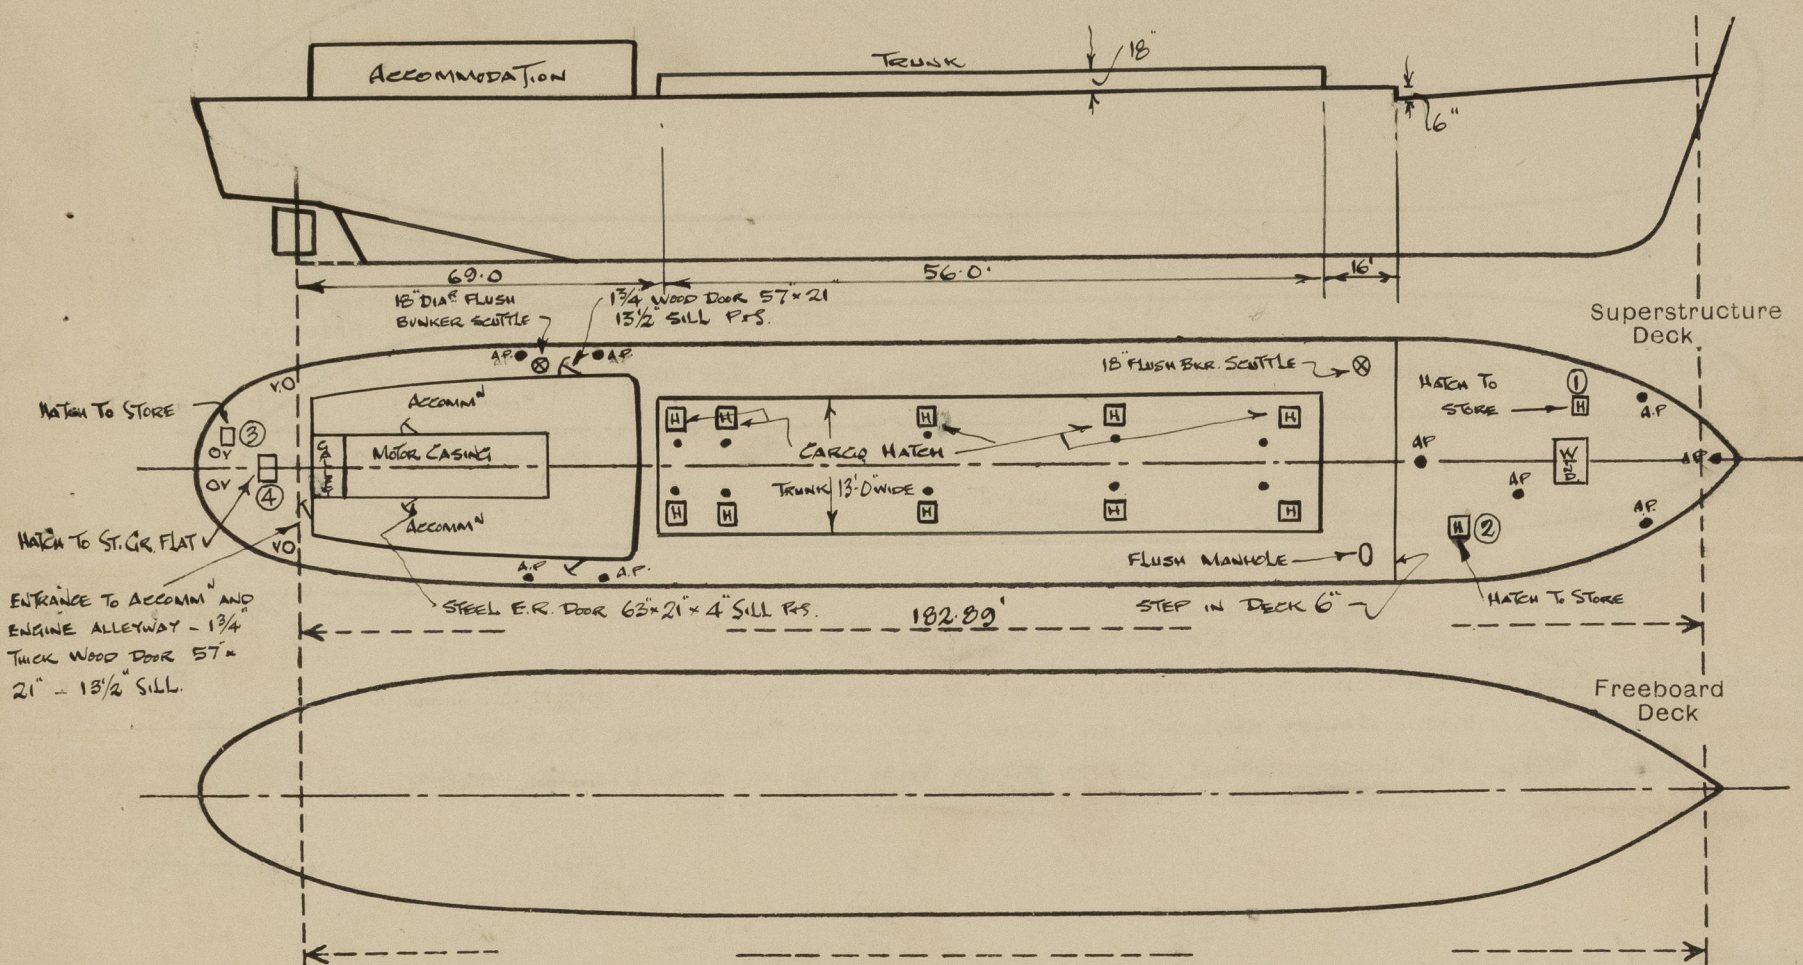 ACCOMMODATION
TRUNK
18"
6"
69.0
56.0'
16'
18" DIAR FLUSH
BUNKER SCUTTLE
1 3/4" WOOD DOOR 57" x 21"
13 1/2" SILL P&S.
Superstructure
Deck
A.P.
A.P.
18" FLUSH BKR. SCUTTLE
HATCH TO
STORE
1
H
A.P
V.O
HATCH TO STORE
3
OV
OV
4
ACCOMMN
GALLEY
MOTOR CASING
ACCOMMN
H
H
H
H
H
CARGO HATCH
TRUNK 13'-0" WIDE
H
H
H
H
H
AP
W
AP
AP
A.P.
H
2
HATCH TO ST. GR. FLAT
VO
A.P
A.P.
FLUSH MANHOLE
ENTRANCE TO ACCOMMN AND
ENGINE ALLEYWAY - 1 3/4"
THICK WOOD DOOR 57" x
21" - 13 1/2" SILL.
STEEL E.R. DOOR 63" x 21" x 4" SILL P&S.
182.89'
STEP IN DECK 6"
HATCH TO STORE
Freeboard
Deck